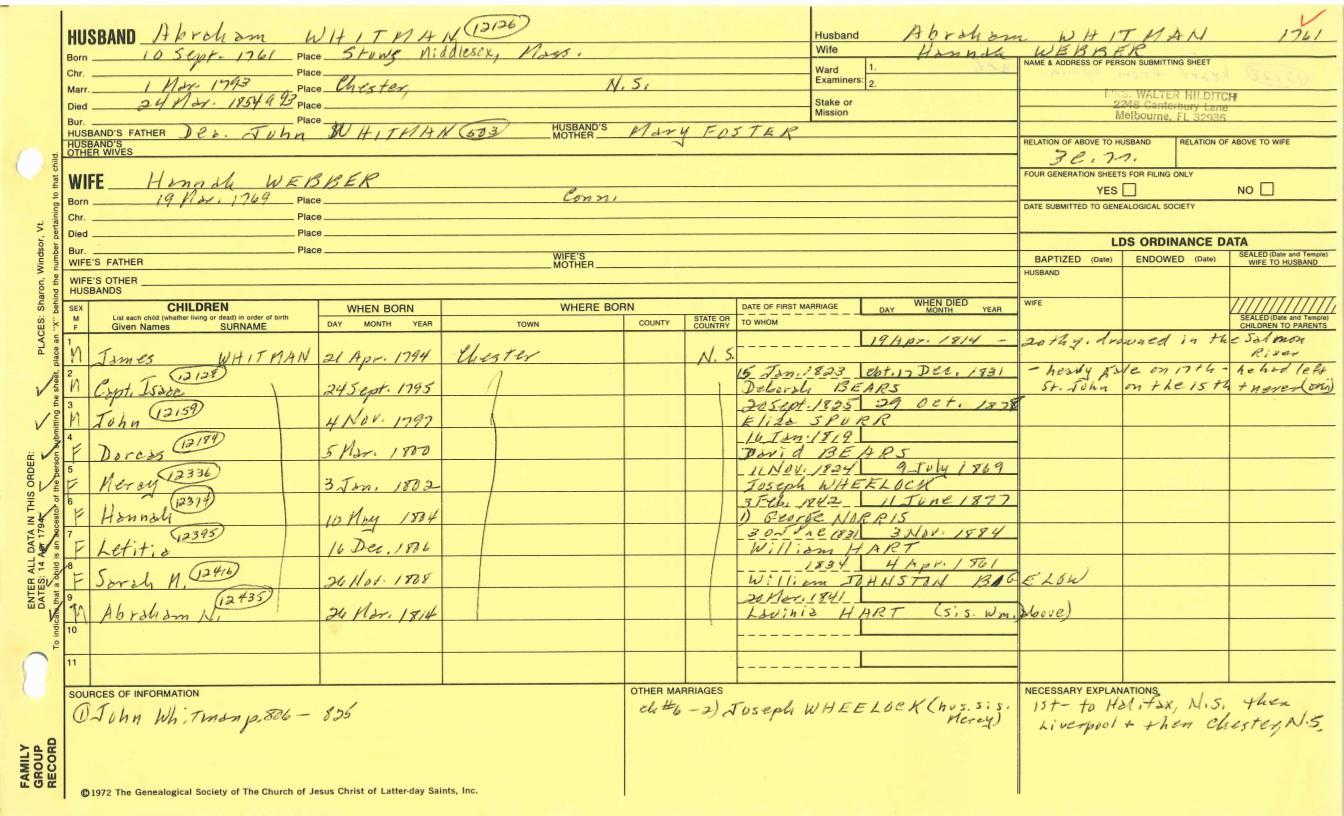 HUSBAND Abraham WHITMAN 12126
Born 10 Sept. 1761 Place Stowe, Middlesex, Mass.
Chr. Place
Marr. 1 Mar. 1793 Place Chester, N.S.
Died 24 Mar. 1854 a 93 Place
Bur. Place
HUSBAND'S FATHER Dea. John WHITMAN 503 HUSBAND'S MOTHER Mary FOSTER
HUSBAND'S OTHER WIVES
Husband Abraham WHITMAN 1761
Wife Hannah WEBBER
Ward 1.
Examiners: 2.
Stake or Mission
NAME & ADDRESS OF PERSON SUBMITTING SHEET
MRS. WALTER HILDITCH
2248 Canterbury Lane
Melbourne, FL 32935
RELATION OF ABOVE TO HUSBAND RELATION OF ABOVE TO WIFE
FOUR GENERATION SHEETS FOR FILING ONLY
YES NO
DATE SUBMITTED TO GENEALOGICAL SOCIETY
WIFE Hannah WEBBER
Born 19 Mar. 1769 Place Conn.
Chr. Place
Died Place
Bur. Place
WIFE'S FATHER WIFE'S MOTHER
WIFE'S OTHER HUSBANDS
LDS ORDINANCE DATA
BAPTIZED (Date) ENDOWED (Date) SEALED (Date and Temple) WIFE TO HUSBAND
HUSBAND
WIFE
SEALED (Date and Temple) CHILDREN TO PARENTS
SEX M F CHILDREN WHEN BORN WHERE BORN DATE OF FIRST MARRIAGE WHEN DIED
List each child (whether living or dead) in order of birth
Given Names SURNAME DAY MONTH YEAR TOWN COUNTY STATE OR COUNTRY TO WHOM DAY MONTH YEAR
1 M James WHITMAN 21 Apr. 1794 Chester N.S. 19 Apr. 1814 - 20thy. drowned in the Salmon River
2 M Capt. Isaac 12128 24 Sept. 1795 15 Jan. 1823 abt. 17 Dec. 1831 - heavy gale on 17th - he had left
Deborah BEARS St. John on the 15th + never
3 M John 12159 4 Nov. 1797 20 Sept. 1825 29 Oct. 1878
Eliza SPURR
4 F Dorcas 12184 5 Mar. 1800 16 Jan. 1819
David BEARS
5 F Mercy 12336 3 Jan. 1802 11 Nov. 1824 9 July 1869
Joseph WHEELOCK
6 F Hannah 12374 10 May 1804 3 Feb. 1842 11 June 1877
1) George NORRIS
7 F Letitia 12395 16 Dec. 1806 1831 3 Nov. 1884
William HART
8 F Sarah M. 12416 26 Nov. 1808 1834 4 Apr. 1861
William JOHNSTON BIGELOW
9 M Abraham N. 12435 26 Mar. 1814 1841
Lavinia HART (sis. Wm. above)
10
11
SOURCES OF INFORMATION
① John Whitman p. 806 - 825
OTHER MARRIAGES
ch #6 - 2) Joseph WHEELOCK (hus. sis. Mercy)
NECESSARY EXPLANATIONS
1st - to Halifax, N.S. then
Liverpool + then Chester, N.S.
©1972 The Genealogical Society of The Church of Jesus Christ of Latter-day Saints, Inc.
FAMILY GROUP RECORD
ENTER ALL DATA IN THIS ORDER:
DATES: 14 Apr 1794 PLACES: Sharon, Windsor, Vt.
To indicate that a child is an ancestor of the person submitting the sheet, place an "X" behind the number pertaining to that child.